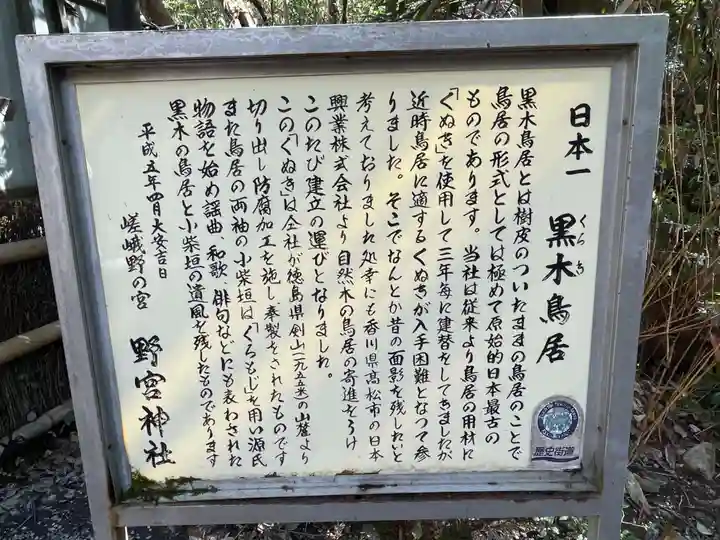 日本一 黒木鳥居
くろき
黒木鳥居とは樹皮のついたままの鳥居のことで
鳥居の形式としては極めて原始的日本最古の
ものであります。当社は従来より鳥居の用材に
「くぬぎ」を使用して三年毎に建替をしてきましたが
近時鳥居に適するくぬぎが入手困難となつて参
りました。そこでなんとか昔の面影を残したいと
考えておりました処幸にも香川県高松市の日本
興業株式会社より自然木の鳥居の寄進をうけ
このたび建立の運びとなりました。
この「くぬぎ」は仝社が徳島県剣山(一九五五米)の山麓より
切り出し防腐加工を施し奉製をされたものです
また鳥居の両袖の小柴垣は「くろもじ」を用い源氏
物語を始め謡曲、和歌、俳句などにも表わされた
黒木の鳥居と小柴垣の遺風を残したものであります
平成五年四月大安吉日
嵯峨野の宮 野宮神社
歴史街道